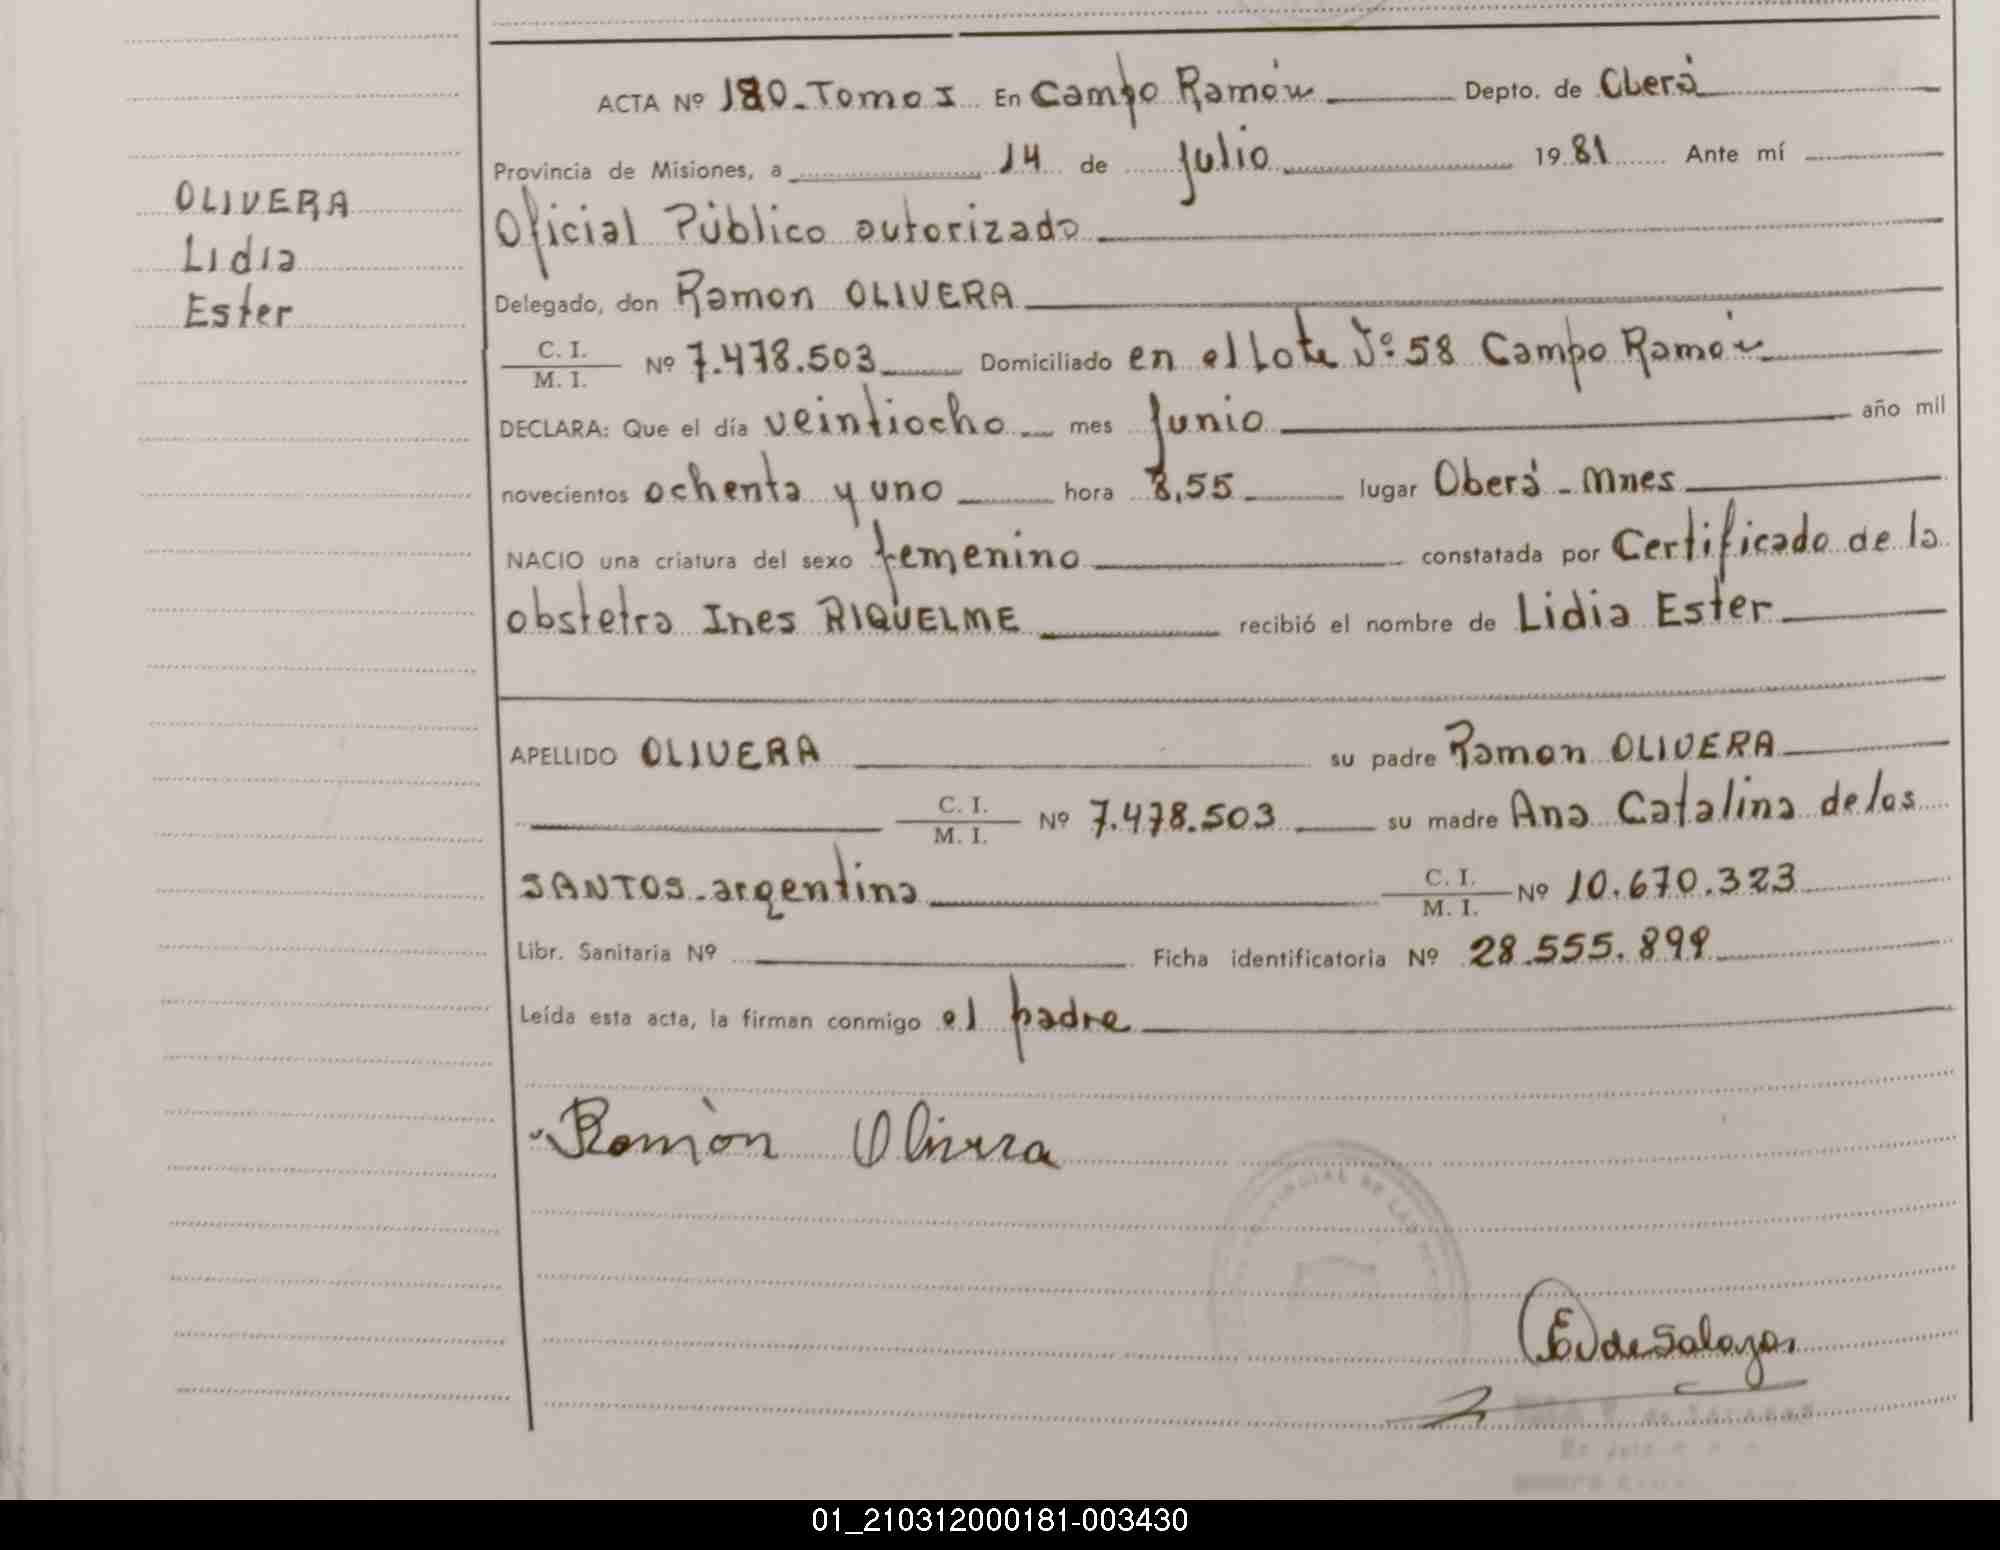 ACTA Nº 180-Tomo I En Campo Ramón Depto. de Oberá
Provincia de Misiones, a 14 de Julio 1981 Ante mí
OLIVERA
Lidia
Ester
Oficial Público autorizado
Delegado, don Ramon OLIVERA
C. I.
M. I. Nº 7.478.503 Domiciliado en el Lote Nº 58 Campo Ramón
DECLARA: Que el día veintiocho mes Junio año mil
novecientos ochenta y uno hora 8,55 lugar Oberá - Mnes
NACIO una criatura del sexo femenino constatada por Certificado de la
obstetra Ines RIQUELME recibió el nombre de Lidia Ester
APELLIDO OLIVERA su padre Ramon OLIVERA
C. I.
M. I. Nº 7.478.503 su madre Ana Catalina de los
SANTOS-argentina C. I.
M. I. Nº 10.670.323
Libr. Sanitaria Nº Ficha identificatoria Nº 28.555.899
Leída esta acta, la firman conmigo el padre
Ramòn Olivera
E. de Salazar
01_210312000181-003430